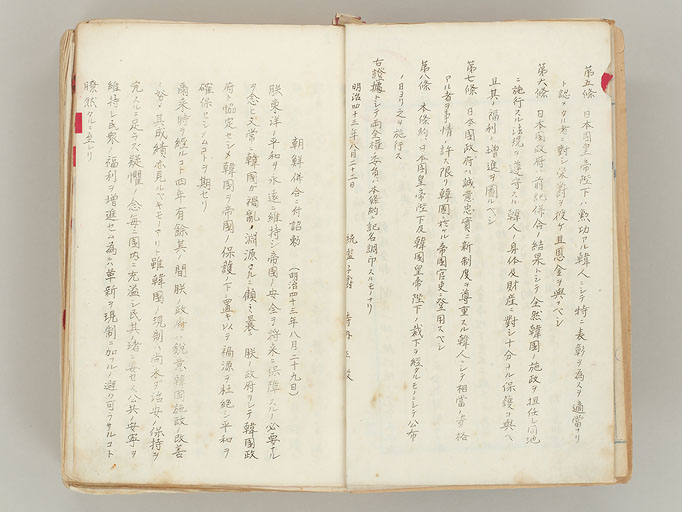 第五條 日本國皇帝陛下ハ勲功アル韓人ニシテ特ニ表彰ヲ為スヲ適當ナリ
ト認メタル者ニ對シ榮爵ヲ授ケ且恩金ヲ與フヘシ
第六條 日本國政府ハ前記併合ノ結果トシテ全然韓國ノ施政ヲ担任シ同地
ニ施行スル法規ヲ遵守スル韓人ノ身体及財産ニ對シ十分ナル保護ヲ與ヘ
且其ノ福利ノ増進ヲ圖ルベシ
第七條 日本國政府ハ誠意忠實ニ新制度ヲ尊重スル韓人ニシテ相當ノ資格
アル者ヲ事情ノ許ス限リ韓國ニ於ケル帝國官吏ニ登用スベシ
第八條 本條約ハ日本國皇帝陛下及韓國皇帝陛下ノ裁可ヲ經タルモノニシテ公布
ノ日ヨリ之ヲ施行ス
右證據トシテ両全權委員ハ本條約ニ記名調印スルモノナリ
明治四十三年八月二十二日
統監子爵 寺内正毅
朝鮮併合ニ付詔勅 (明治四十三年八月二十九日)
朕東洋ノ平和ヲ永遠ニ維持シ帝國ノ安全ヲ將来ニ保障スルノ必要ナル
ヲ念ヒ又常ニ韓國ガ禍亂ノ淵源タルニ顧ミ曩ニ朕ノ政府ヲシテ韓國政
府ト協定セシメ韓國ヲ帝國ノ保護ノ下ニ置キ以テ禍源ヲ杜絶シ平和ヲ
確保センコトヲ期セリ
爾来時ヲ經ルコト四年有餘其ノ間朕ノ政府ハ鋭意韓國施政ノ改善
ニ努メ其ノ成績亦見ルベキモノアリト雖韓國ノ現制ハ尚未ダ治安ノ保持ヲ
完スルニ足ラズ疑懼ノ念毎ニ國内ニ充溢シ民其ノ堵ニ安セス公共ノ安寧ヲ
維持シ民衆ノ福利ヲ増進セムカ為ニハ革新ヲ現制ニ加フルノ避ク可ラサルコト
瞭然タルニ至レリ